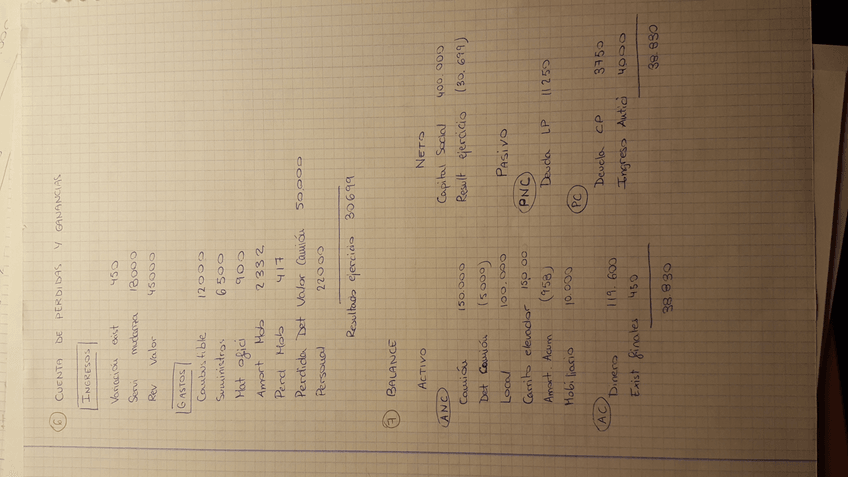 6 CUENTA DE PERDIDAS Y GANANCIAS
INGRESOS
Variación exist 450
Servi mudanza 18000
Rev Valor 45000
GASTOS
Combustible 12000
Suministros 6500
Mat ofici 900
Amort Mob 2332
Perd Mob 417
Perdida Det Valor Camión 50.000
Personal 22000
Resultado ejercicio 30699
7 BALANCE
ACTIVO
ANC
Camión 150.000
Det Camión (5000)
Local 100.000
Carrito elevador 15000
Amort Acum (958)
Mobiliario 10.000
AC
Dinero 119.600
Exist finales 450
38.830
NETO
Capital Social 400.000
Result ejercicio (30.699)
PASIVO
PNC
Deuda LP 11250
PC
Deuda CP 3750
Ingreso Antici 4000
38.830